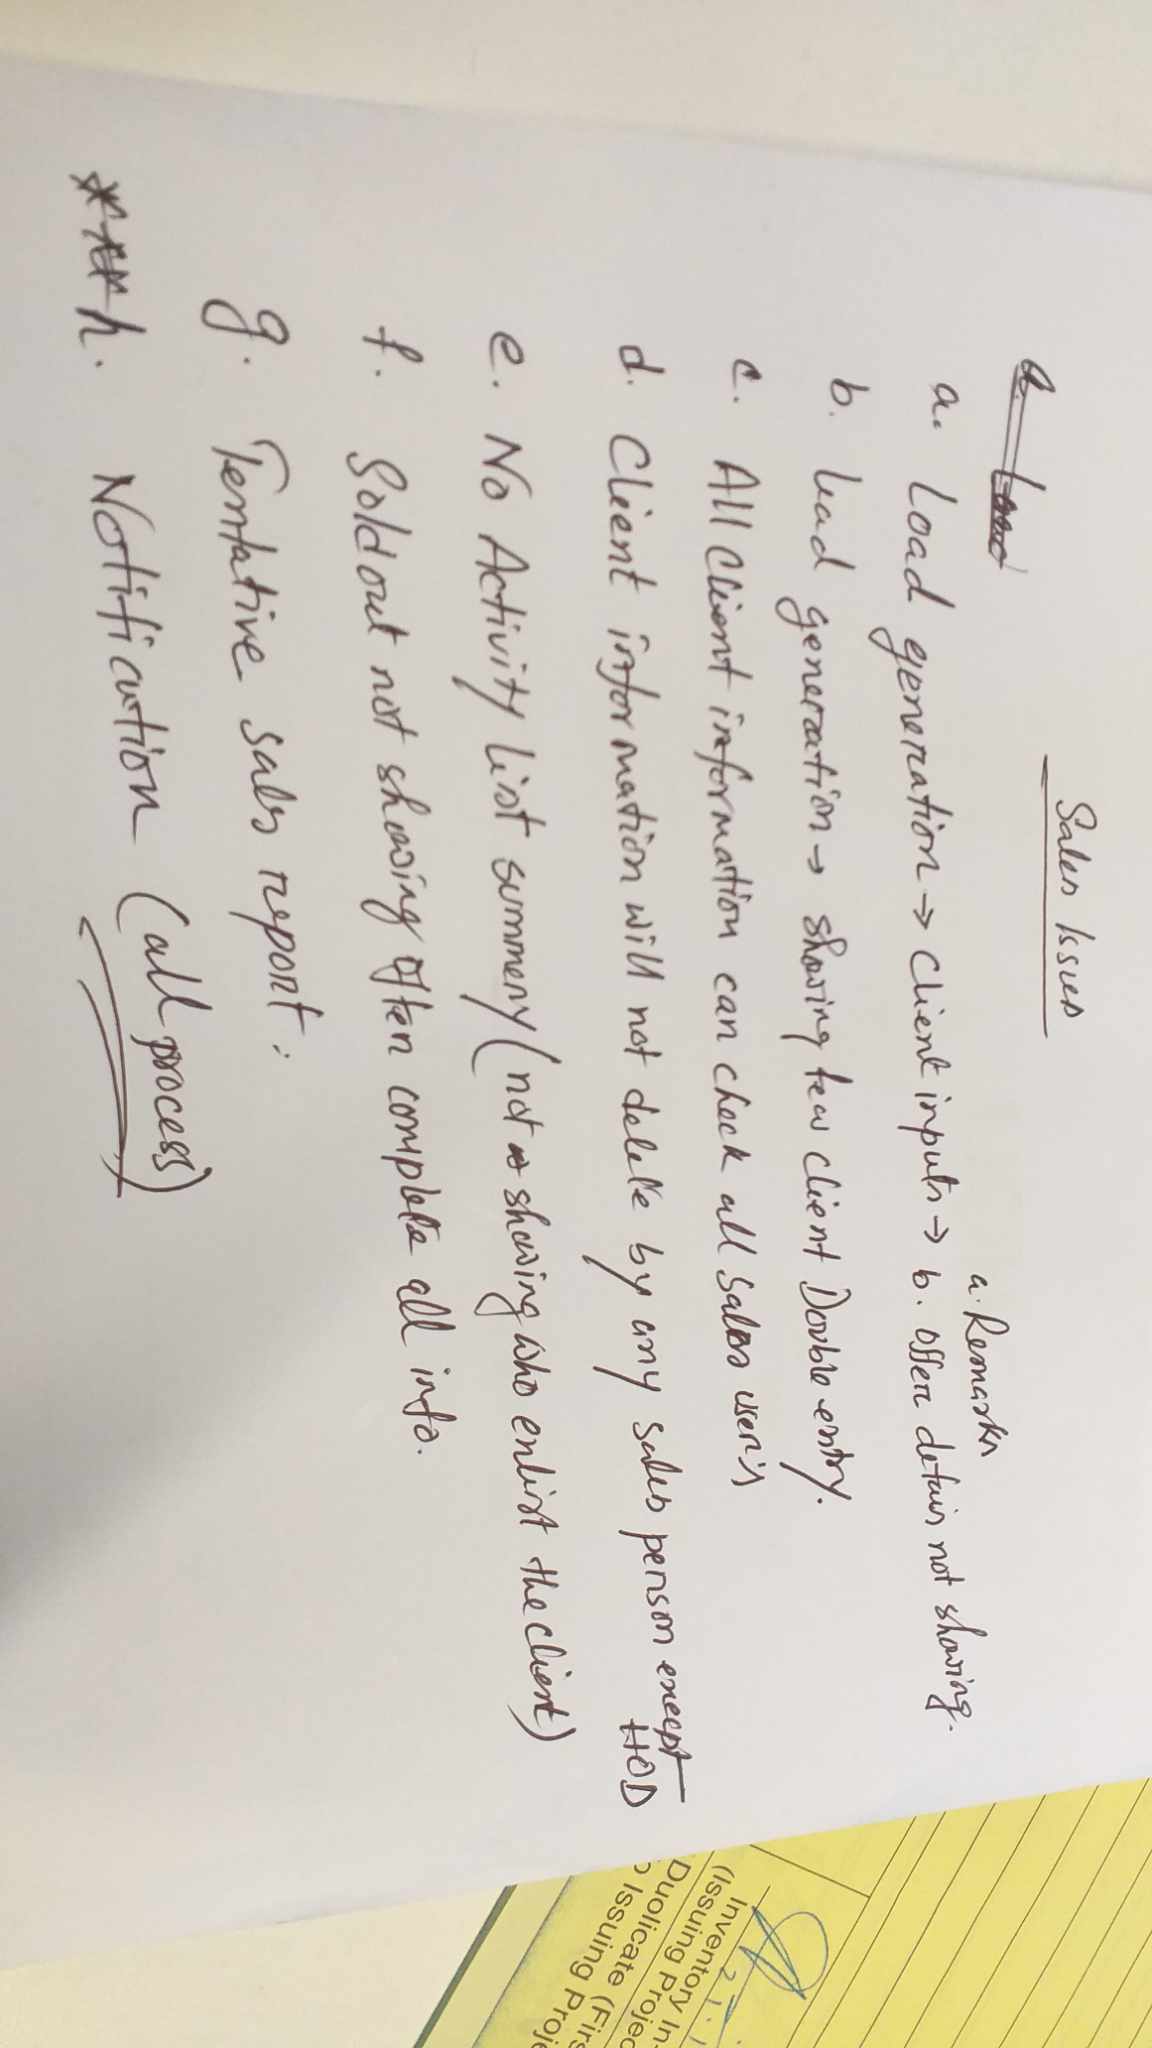 Sales Issues
a. Remarks
a. Load generation → Client inputs → b. Offer detais not showing.
b. Lead generation → showing few client Double entry.
c. All Client information can check all Sales user's
d. Client information will not delete by any sales person except
HOD
e. No Activity List summery (not showing who enlist the client)
f. Sold out not showing often complete all info.
g. Tentative sales report.
*** h. Notification (all process)
Inventory In-
(Issuing Projec
Duplicate (Firs
Issuing Proje